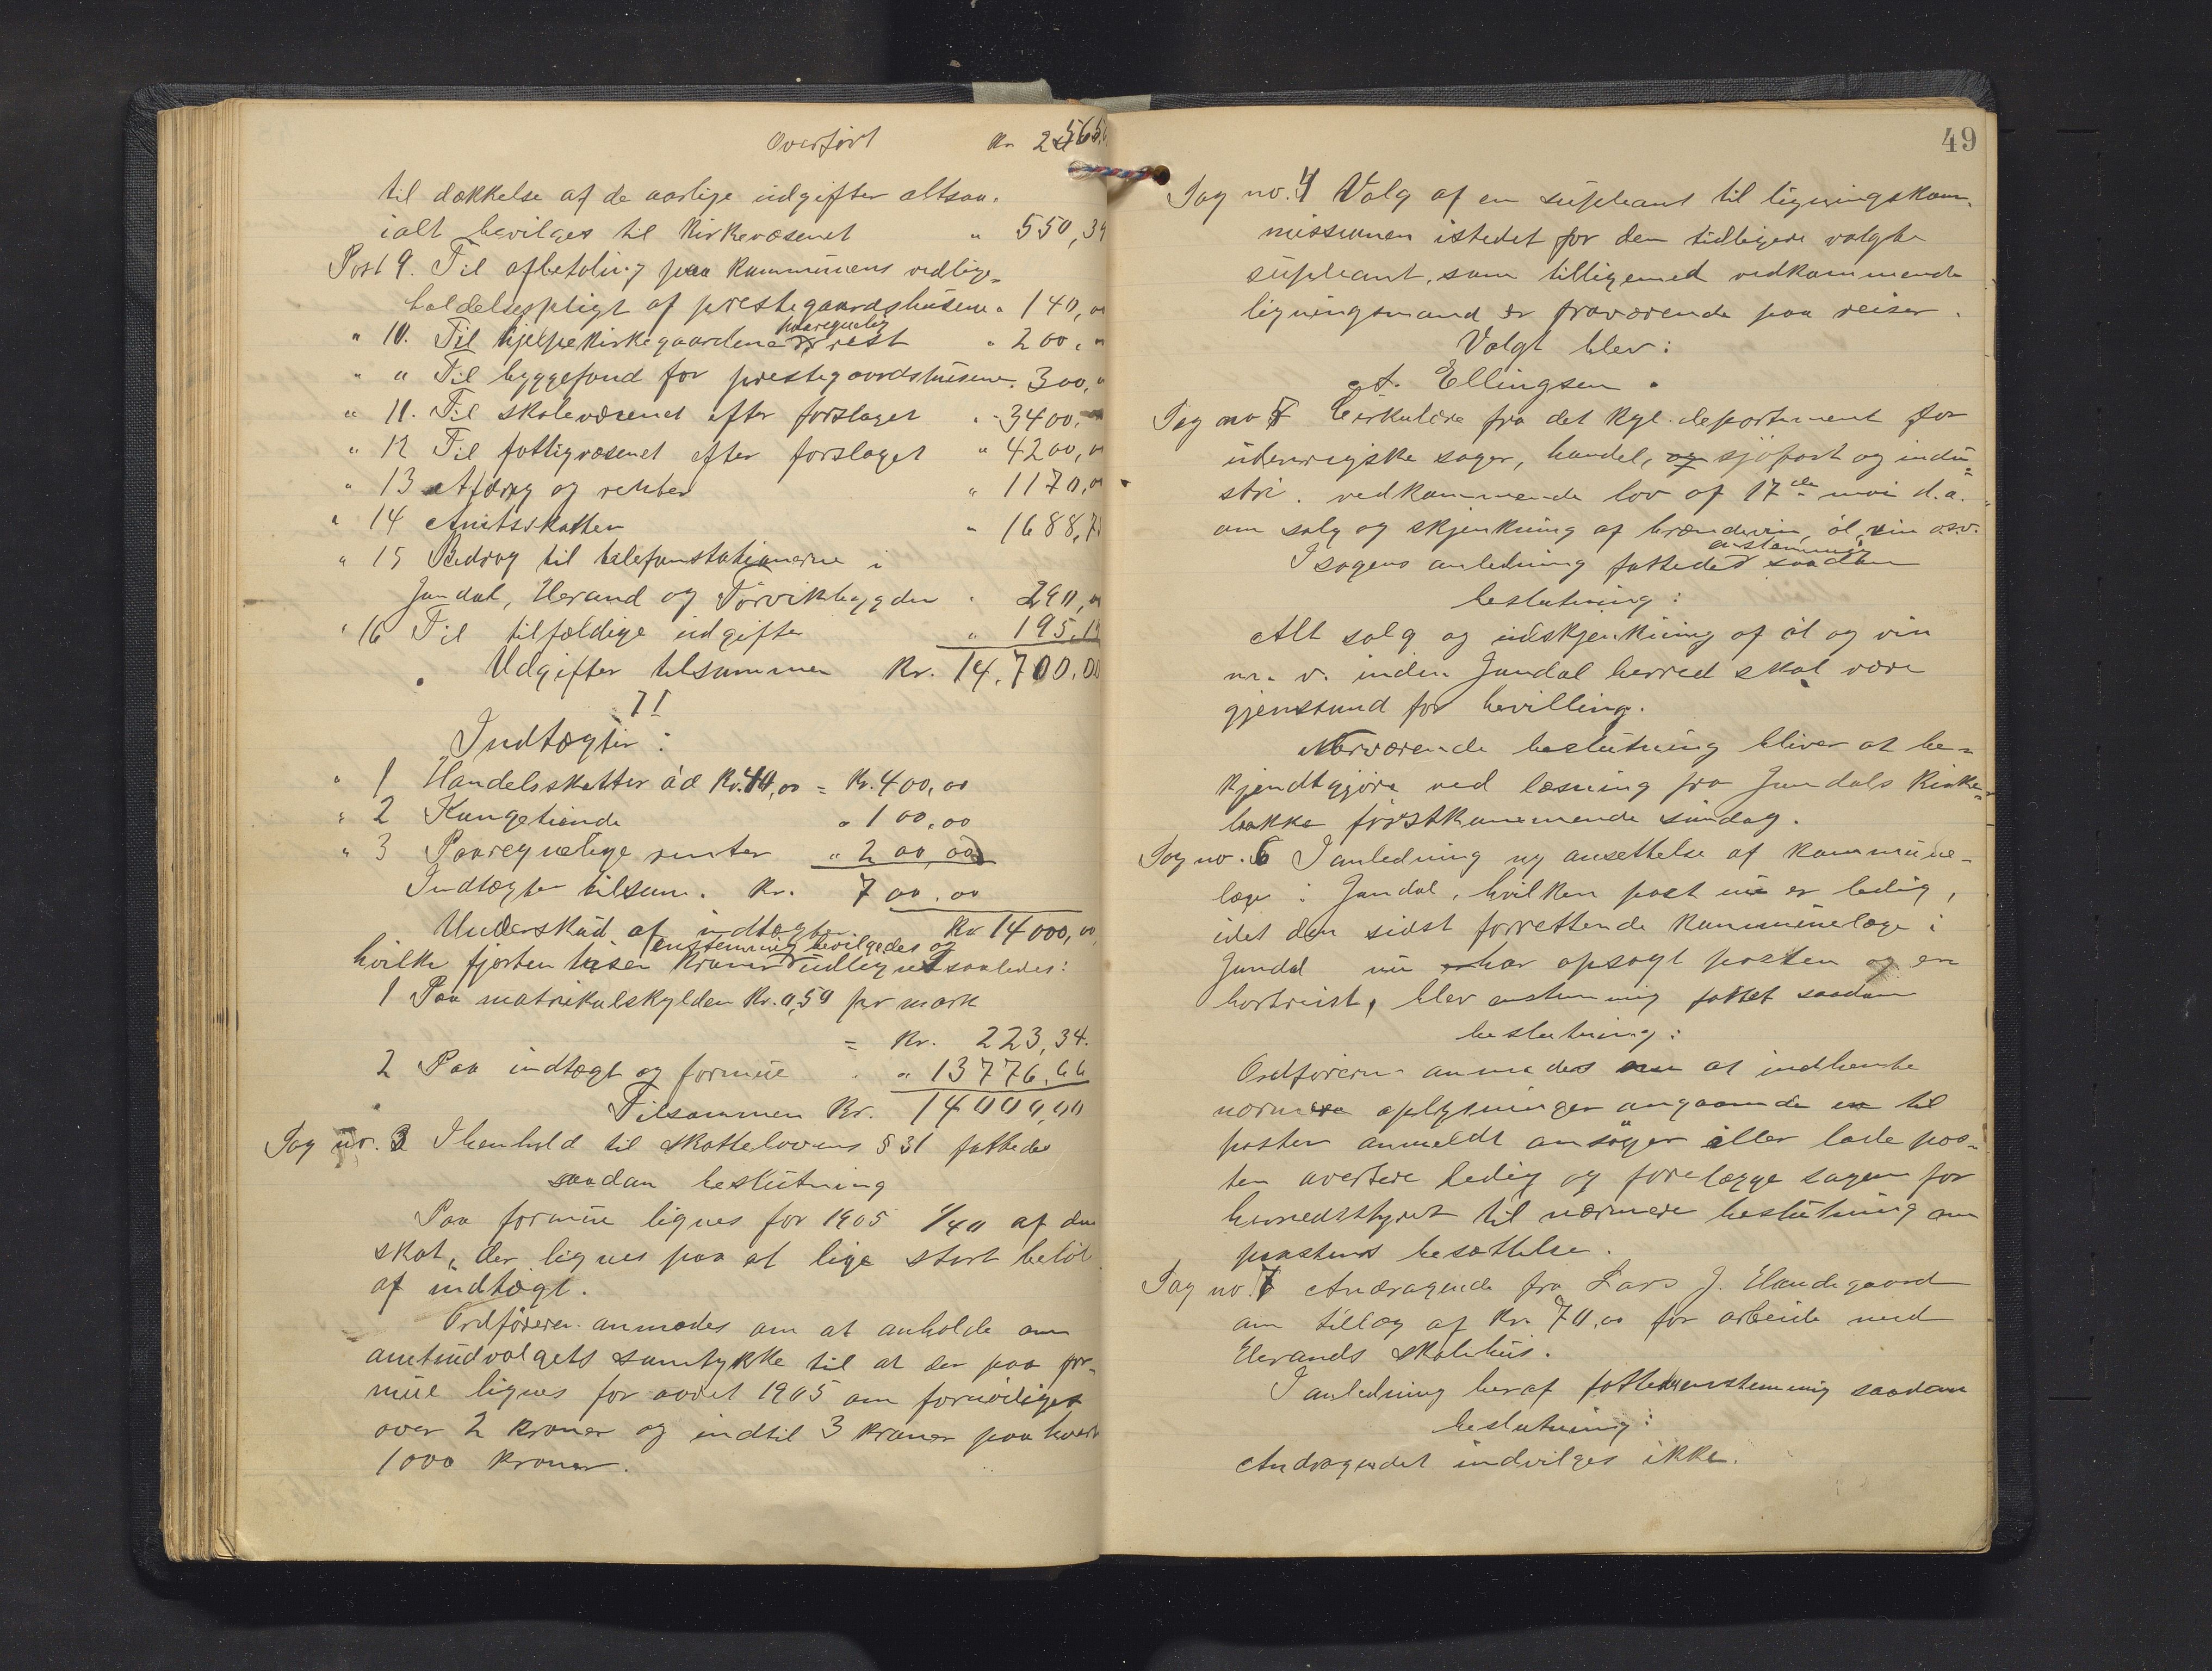 Overført Kr. 2565,
til dækkelse af de aarlige udgifter altsaa.
ialt bevilges til kirkevæsenet " 550,34
Post 9. Til afbetaling paa kommunens vedlige-
holdelsespligt af prestegaardshusene " 140,00
" 10. Til hjelpekirkegaardene paaregnelig rest " 200, "
" " Til byggefond for prestegaardshusene. 300, "
" 11. Til skolevæsenet efter forslaget " 3400,
" 12 Til fattigvæsenet efter forslaget " 4200,00
" 13 Afdrag og renter " 1170,00
" 14 Amtsskatten " 1688,7
" 15 Bidrag til telefonstationerne i
Jondal, Herand og Torvikbygden " 290,00
" 16 Til tilfældige udgifter " 195,1
Udgifter tilsammen Kr. 14.700.00
II
Indtægter:
" 1 Handelsskatter ád Kr. 40,00 = Kr. 400,00
" 2 Kongetiende " 100,00
" 3 Paaregnelige renter " 200,00
Indtægter tilsam. Kr. 700.00
Underskud af indtægter Kr 14000,00
enstemmig bevilgedes og
hvilke fjorten tusen kroner udlignet saaledes:
1 Paa matrikulskylden Kr. 0,50 pr mark
= Kr. 223,34.
2 Paa indtægt og formue " 13776,66
Tilsammen Kr. 14000,00
Sag nr. 3 I henhold til skattelovens § 31 fattedes
saadan beslutning
Paa formue lignes for 1905 1/40 af den
skat, der lignes paa et lige stort beløb
af indtægt.
Ordføreren anmodes om at anholde om
amtudvalgets samtykke til at der paa for-
mue lignes for aaret 1905 om fornødiget
over 2 kroner og indtil 3 kroner paa hvert
1000 kroner.
49
Sag no. 4 Valg af en supleant til ligningskom-
missionen istedet for den tidligere valgte
supleant, som tilligemed vedkommende
ligningsmand er fraværende paa reiser.
Valgt blev:
Ellingsen.
Sag no 5 Cirkulære fra det kgl. departement for
udenrigske sager, handel, og sjöfart og indu-
stri. vedkommende lov af 17de mai d.a.
om salg og skjenkning af brændevin, öl, vin osv.
enstemmig
I sagens anledning fattedes saadan
beslutning:
Alt salg og udskjenkning af öl og vin
m. v. inden Jondal herred skal være
gjenstand for bevilling.
Nærværende beslutning bliver at be-
kjendtgjøre ved læsning fra Jondals kirke-
bakke förstkommende söndag.
Sag no. 6 I anledning ny ansettelse af kommune-
læge i Jondal, hvilken post nu er ledig,
idet den sidst forrettende kommunelæge i
Jondal nu har opsagt posten og er
bortreist, blev enstemmig fattet saadan
beslutning:
Ordføreren anmodes om at indhente
nærmere oplysninger angaaende en til
posten anmeldt ansöger eller lade pos-
ten avertere ledig og forelægge sagen for
herredsstyret til nærmere beslutning om
postens besættelse.
Sag no. 7 Andragende fra Lars J. Handegaard
om tillæg af Kr. 70,00 for arbeide med
Herands skolehus.
I anledning heraf fattedes enstemmig saadan
beslutning:
Andragendet indvilges ikke.